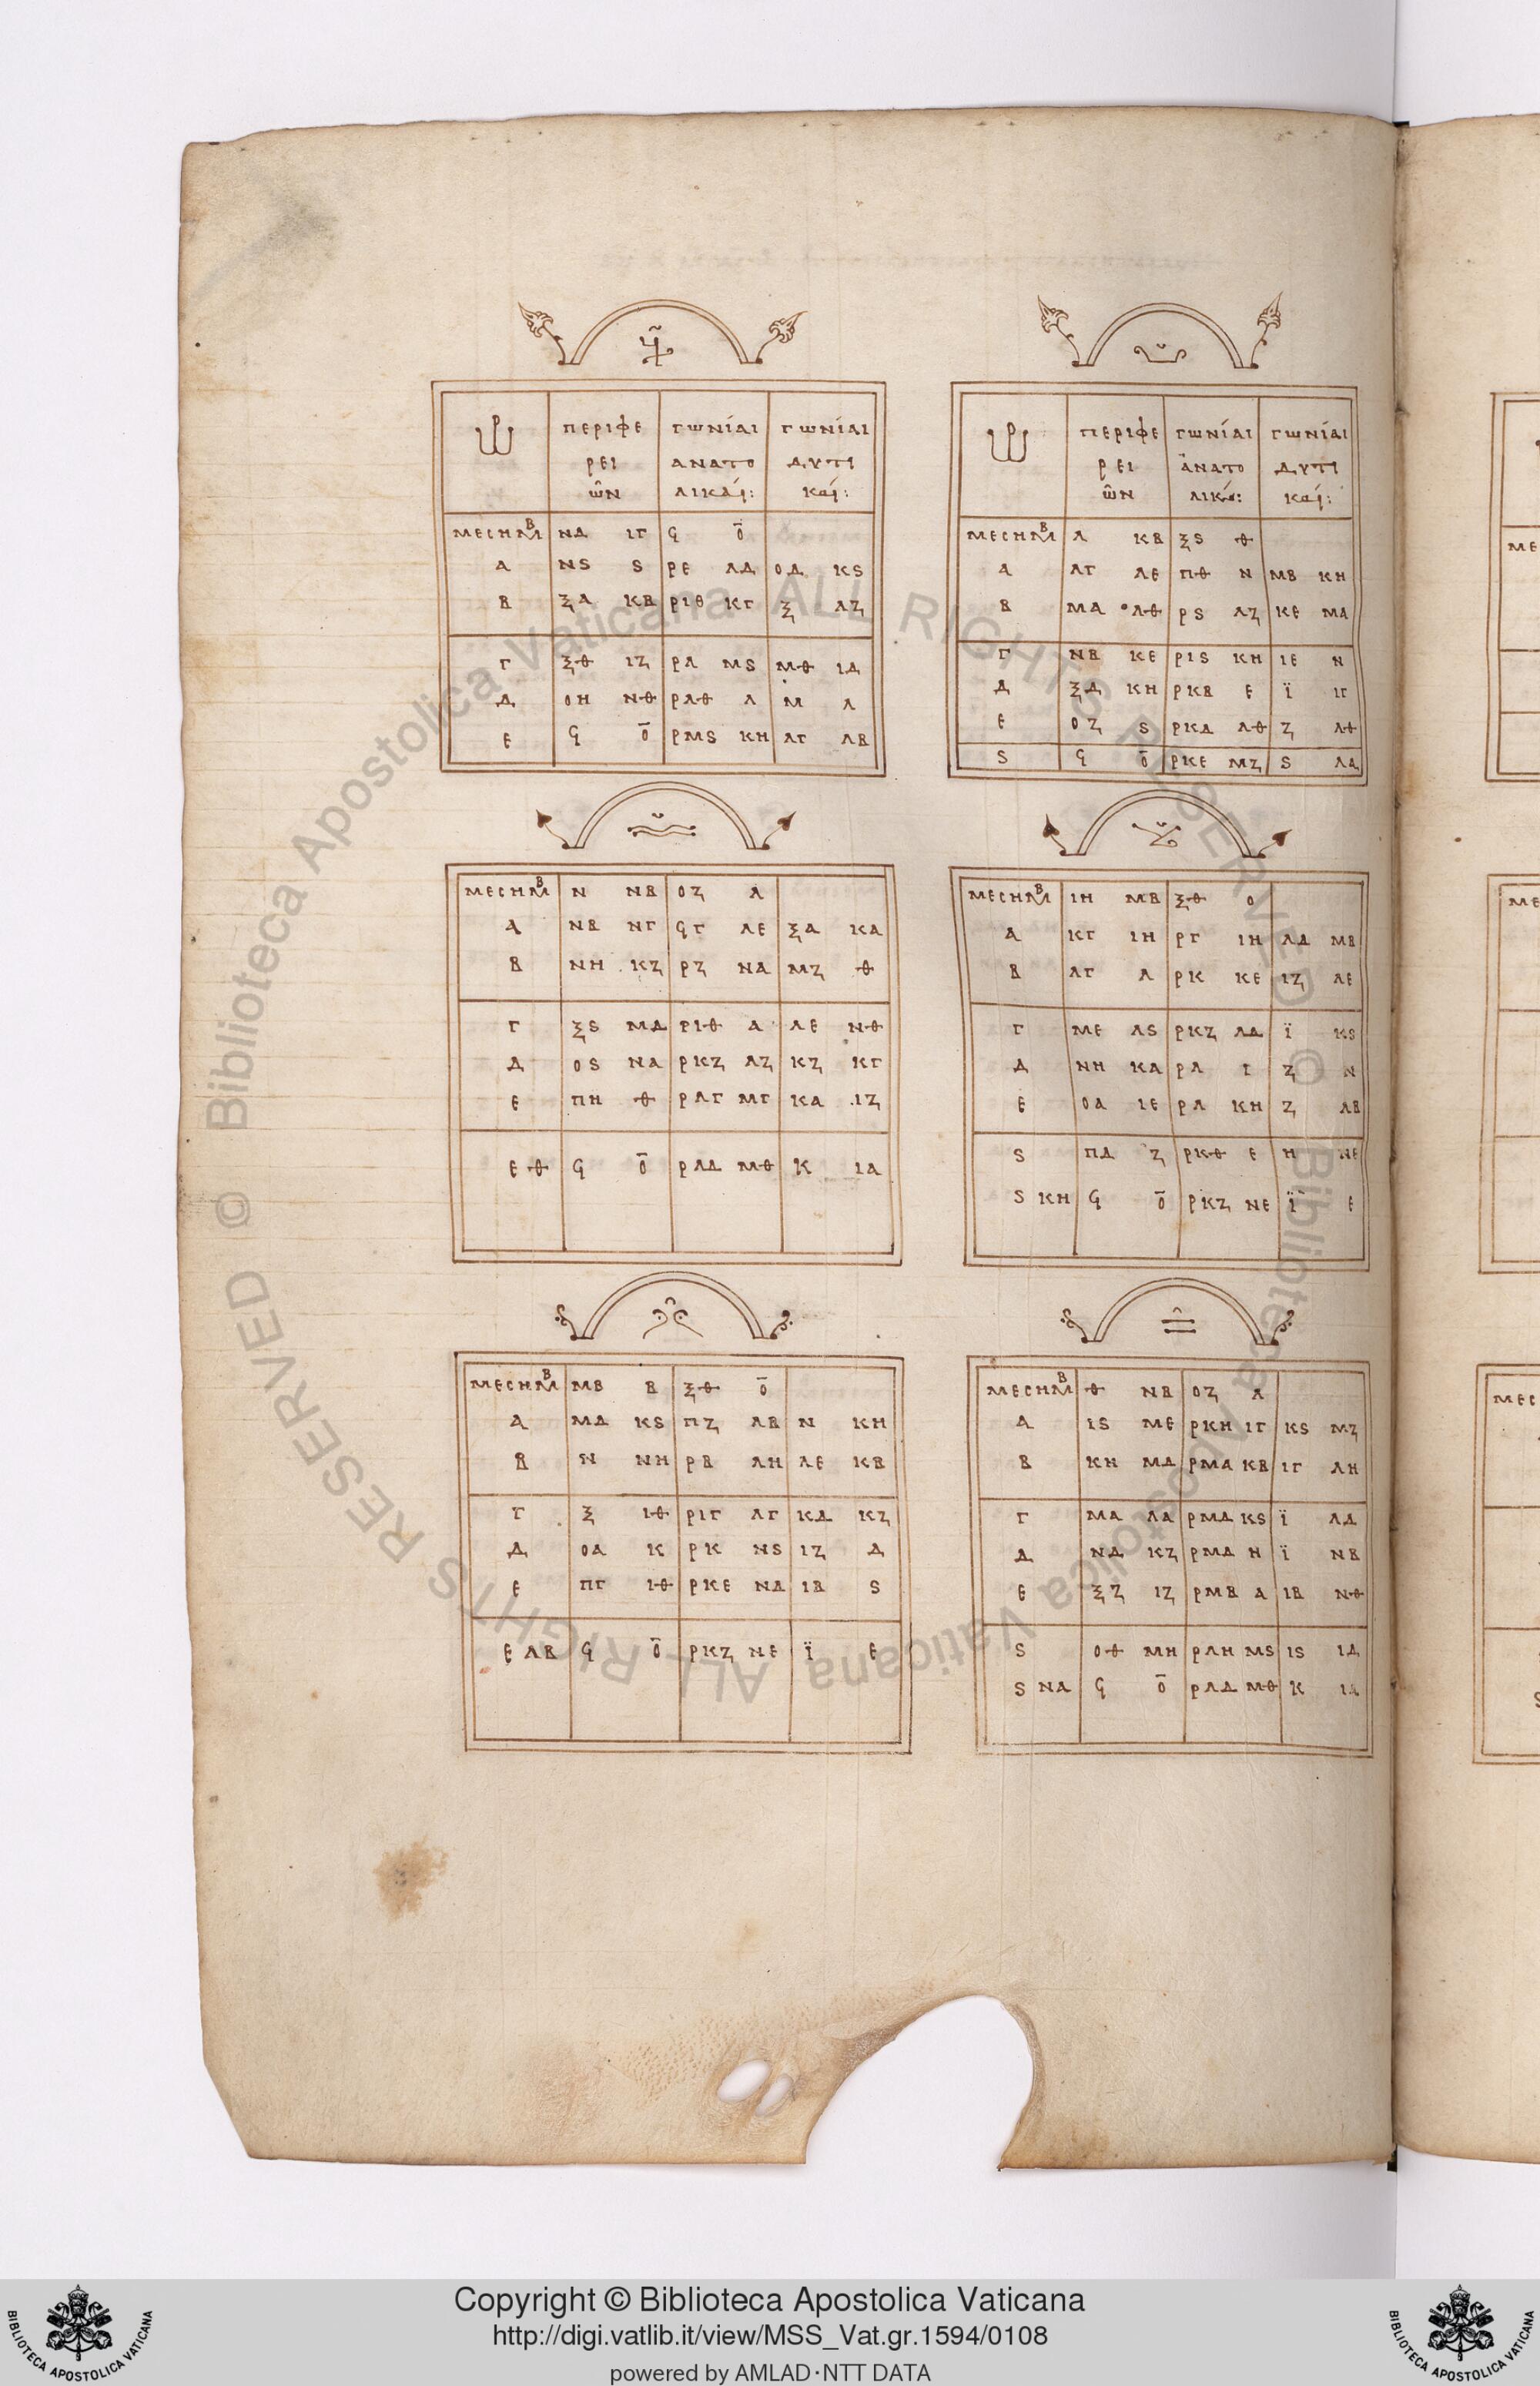 ΠΕΡΙΦΕ ΓΩΝΊΑΙ ΓΩΝΊΑΙ
ΡΕΙ ΑΝΑΤΟ ΔΥΤΙ
ῶΝ ΛΙΚΑΊ: ΚΑΊ:
ΜΕΣΗΜΒ ΝΔ ΙΓ Ϟ ō
Α ΝϚ Ϛ ΡΕ ΛΔ ΟΔ ΚϚ
Β ΞΑ ΚΒ ΡΙΘ ΚΓ Ξ ΛΖ
Γ ΞΘ ΙΖ ΡΛ ΜϚ ΜΘ ΙΔ
Δ ΟΗ ΝΘ ΡΛΘ Λ Μ Λ
Ε Ϟ ō ΡΜϚ ΚΗ ΛΓ ΛΒ
ΠΕΡΙΦΕ ΓΩΝΊΑΙ ΓΩΝΊΑΙ
ΡΕΙ ἈΝΑΤΟ ΔΥΤΙ
ῶΝ ΛΙΚΑΊ: ΚΑΊ:
ΜΕΣΗΜΒ Λ ΚΒ ΞϚ Θ
Α ΛΓ ΛΕ ΠΘ Ν ΜΒ ΚΗ
Β ΜΑ ΛΘ ΡϚ ΛΖ ΚΕ ΜΑ
Γ ΝΒ ΚΕ ΡΙϚ ΚΗ ΙΕ Ν
Δ ΞΔ ΚΗ ΡΚΒ Ε Ϊ ΙΓ
Ε ΟΖ Ϛ ΡΚΔ ΛΘ Ζ ΛΘ
Ϛ Ϟ ō ΡΚΕ ΜΖ Ϛ ΛΔ
ΜΕΣΗΜΒ Ν ΝΒ ΟΖ Λ
Α ΝΒ ΝΓ ϞΓ ΛΕ ΞΑ ΚΑ
Β ΝΗ ΚΖ ΡΖ ΝΑ ΜΖ Θ
Γ ΞϚ ΜΔ ΡΙΘ Α ΛΕ ΝΘ
Δ ΟϚ ΝΑ ΡΚΖ ΛΖ ΚΖ ΚΓ
Ε ΠΗ Θ ΡΛΓ ΜΓ ΚΑ ΙΖ
Ε Θ Ϟ ō ΡΛΔ ΜΘ Κ ΙΑ
ΜΕΣΗΜΒ ΙΗ ΜΒ ΞΘ Ο
Α ΚΓ ΙΗ ΡΓ ΙΗ ΛΔ ΜΒ
Β ΛΓ Λ ΡΚ ΚΕ ΙΖ ΛΕ
Γ ΜΕ ΛϚ ΡΚΖ ΛΔ Ϊ ΚϚ
Δ ΝΗ ΚΑ ΡΛ Ι Ζ Ν
Ε ΟΑ ΙΕ ΡΛ ΚΗ Ζ ΛΒ
Ϛ ΠΔ Ζ ΡΚΘ Ε Η ΝΕ
Ϛ ΚΗ Ϟ ō ΡΚΖ ΝΕ Ϊ Ε
ΜΕΣΗΜΒ ΜΒ Β ΞΘ ō
Α ΜΔ ΚϚ ΠΖ ΛΒ Ν ΚΗ
Β Ν ΝΗ ΡΒ ΛΗ ΛΕ ΚΒ
Γ Ξ ΙΘ ΡΙΓ ΛΓ ΚΔ ΚΖ
Δ ΟΑ Κ ΡΚ ΝϚ ΙΖ Δ
Ε ΠΓ ΙΘ ΡΚΕ ΝΔ ΙΒ Ϛ
Ε ΛΒ Ϟ ō ΡΚΖ ΝΕ Ϊ Ε
ΜΕΣΗΜΒ Θ ΝΒ ΟΖ Λ
Α ΙϚ ΜΕ ΡΚΗ ΙΓ ΚϚ ΜΖ
Β ΚΗ ΜΔ ΡΜΑ ΚΒ ΙΓ ΛΗ
Γ ΜΑ ΛΑ ΡΜΔ ΚϚ Ϊ ΛΔ
Δ ΝΔ ΚΖ ΡΜΔ Η Ϊ ΝΒ
Ε ΞΖ ΙΖ ΡΜΒ Α ΙΒ ΝΘ
Ϛ ΟΘ ΜΗ ΡΛΗ ΜϚ ΙϚ ΙΔ
Ϛ ΝΑ Ϟ ō ΡΛΔ ΜΘ Κ ΙΑ
Biblioteca Apostolica Vaticana ALL RIGHTS RESERVED ©
Copyright © Biblioteca Apostolica Vaticana
http://digi.vatlib.it/view/MSS_Vat.gr.1594/0108
powered by AMLAD·NTT DATA
BIBLIOTECA APOSTOLICA VATICANA
BIBLIOTECA APOSTOLICA VATICANA